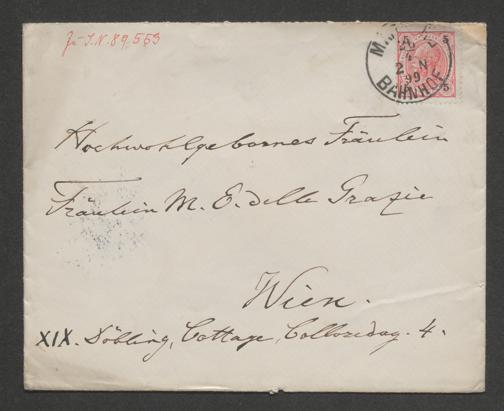 Zu I.N. 89.553
5
BAHNHOF
99
5
Hochwohlgebornes Fräulein
Fräulein M. E. delle Grazie
Wien.
XIX. Döbling, Cottage, Colloredog. 4.